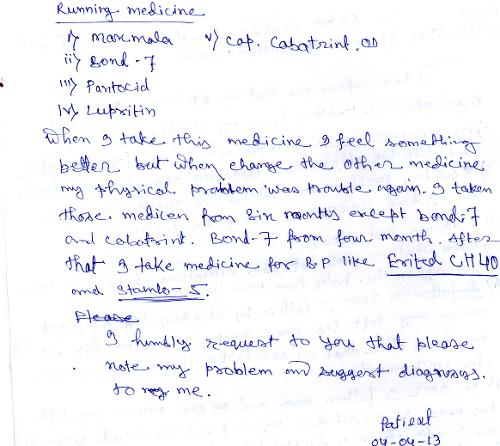 Running medicine
i) Maxmala v) Cap. Cabatrint. OD
ii) Bond-7
iii) Pantocid
iv) Lupritin
When I take this medicine I feel something
better but when change the other medicine
my physical problem was trouble again. I taken
those medicen from six months except bond-7
and cabatrint. Bond-7 from four month. After
that I take medicine for B.P like Erited CH 40
and Stamlo-5.
Please
I humbly request to you that please
note my problem and suggest diognosys.
to me.
Patient
04-04-13